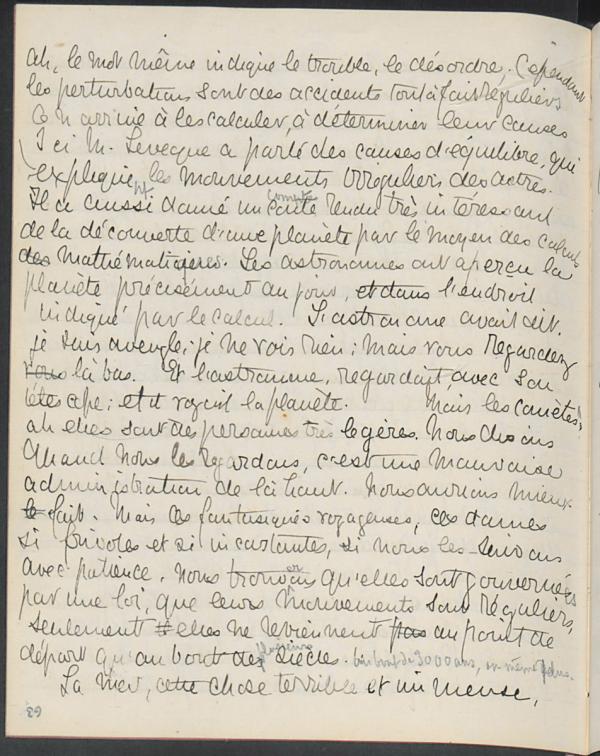 ah, le mot même indique le trouble, le désordre, Cependant
les perturbations sont des accidents tout à fait réguliers
On arrive à les calculer, à déterminer leur causes
Ici M. Leveque a parlé des causes d'équilibre, qui
explique les mouvements irreguliers des actres.
Il a aussi donné un compte rendu très intéressant
de la découverte d'une planète par le moyen des calculs
des mathématiques. Les astronomes ont aperçu la
planète précisément au jour, et dans l'endroit
indiqué par le calcul. L'astronome avait dit.
je suis aveugle; je ne vois rien; mais vous regardez
vous là bas. Et l'astronome, regardait avec son
télescope; et il voyait la planète. Mais les comètes,
ah elles sont des personnes très legères. Nous disions
Quand nous les regardons, c'est une mauvaise
administration de là haut. Nous aurions mieux
le fait. Mais ces fantasiques voyageuses, ces dames
si frivoles et si inconstantes, si nous les suivons
avec patience. Nous trouvons qu'elles sont gouvernées
par une loi, que leurs mouvements sont réguliers,
seulement elles ne reviennent pas au point de
départ qu'au bout des plusieurs siècles. 3000 ans, même plus.
La mer, cette chose terrible et immense,
63